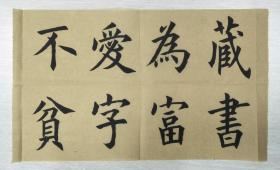 藏書
為富
愛字
不貧